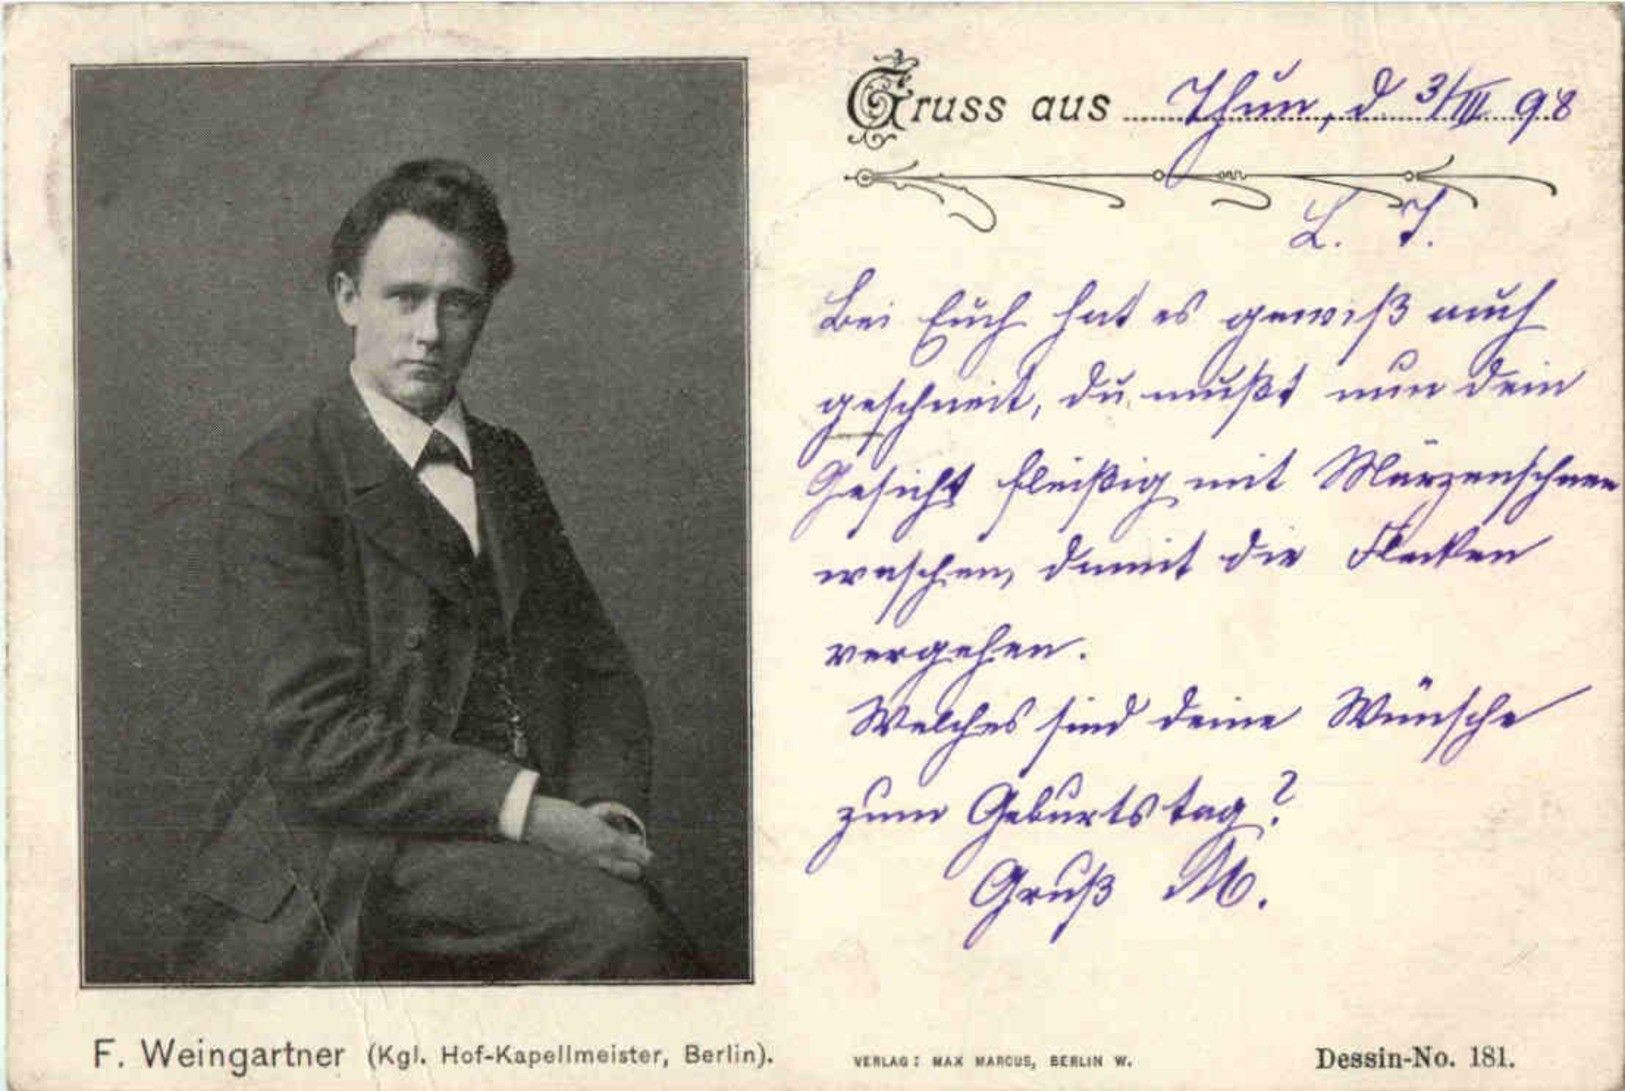 Gruss aus Thun, d 3/III 98
L. J.
Bei Euch hat es gewiß auch
geschneit, du mußt nun dein
Gesicht fleißig mit Märzenschnee
waschen, damit die Flecken
vergehen.
Welches sind deine Wünsche
zum Geburtstag?
Gruß M.
F. Weingartner (Kgl. Hof-Kapellmeister, Berlin).
VERLAG: MAX MARCUS, BERLIN W.
Dessin-No. 181.